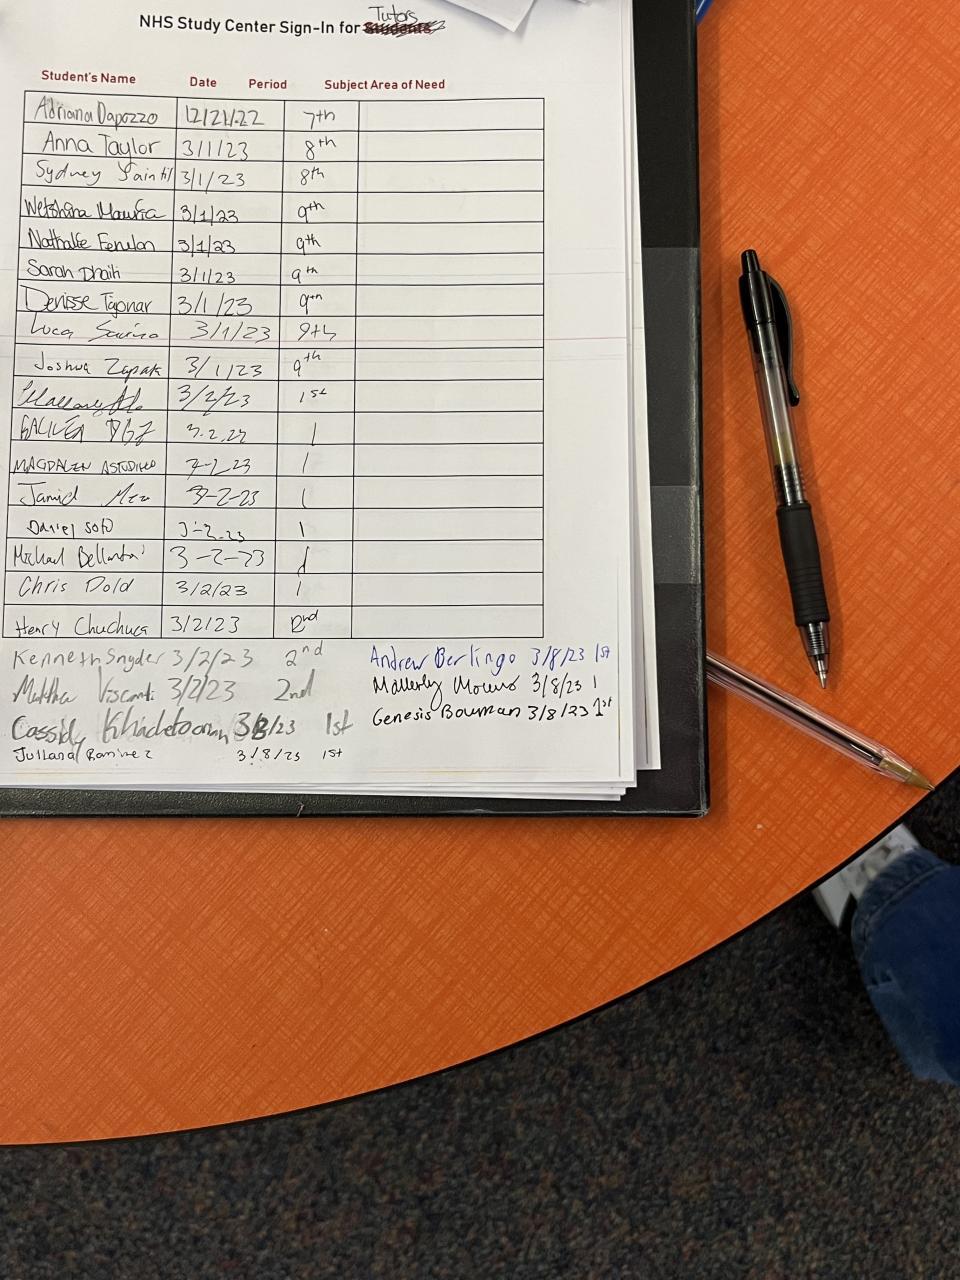 Tutors
NHS Study Center Sign-In for Students
Student's Name Date Period Subject Area of Need
Adriana Dapozzo 12/21/22 7th
Anna Taylor 3/1/23 8th
Sydney 3/1/23 8th
3/1/23 9th
Nathalie Fenelon 3/1/23 9th
Sarah Dhaiti 3/1/23 9th
Denisse 3/1/23 9th
Luca 3/1/23 9th
Joshua Zapata 3/1/23 9th
3/2/23 1st
1
MAGDALEN ASTUDILLO 1
3-2-23 1
Daniel Soto 3-2-23 1
Michael 3-2-23 1
Chris Dold 3/2/23 1
Henry Chuchuca 3/2/23 2nd
Kenneth Snyder 3/2/23 2nd
Visconti 3/2/23 2nd
Cassidy 1st
Juliana Ramirez 3/8/23 1st
Andrew Berlingo 3/8/23 1st
3/8/23 1
Genesis Bowman 3/8/23 1st